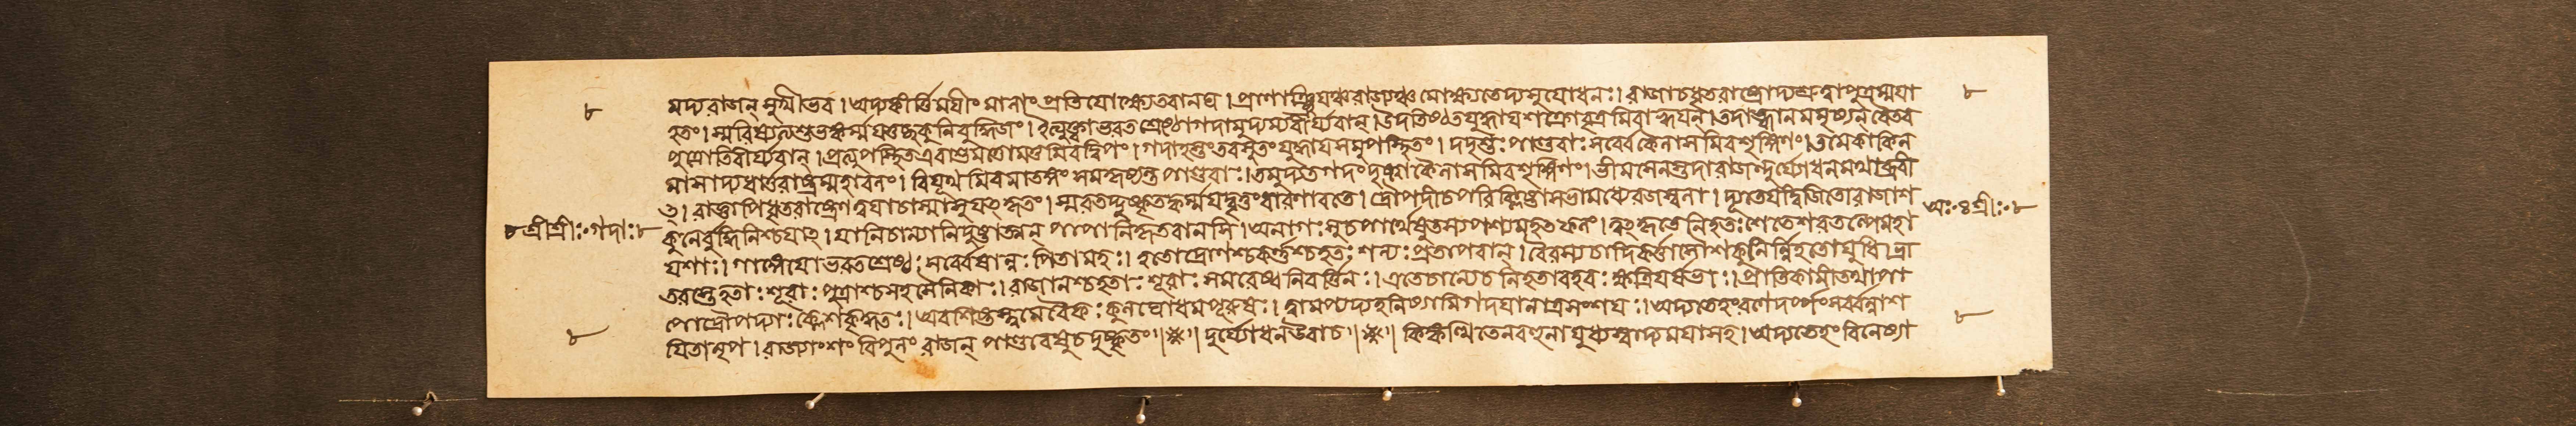 ৮ ৮
মদ্যরাজন্ সুখীভব। অদ্যকীর্ত্তিমযীং মালাং প্রতিযোক্ষ্যেতবানঘ। প্রাণান্শ্রিযঞ্চরাজ্যঞ্চ মোক্ষ্যতেদ্যসুযোধনঃ। রাজাচধৃতরাষ্ট্রোদ্যশ্রুত্বাপুত্রম্মযা
হতং। স্মরিষ্যত্যশুভঙ্কর্ম্মযত্তচ্ছকুনিবুদ্ধিজং। ইত্যুক্ত্বাভরতশ্রেষ্ঠোগদামুদ্যম্যবীর্য্যবান্। উদতিষ্ঠতযুদ্ধাযশক্রোবৃত্রমিবাহ্বযন্। তদাহ্বানমমৃষ্যন্ বৈতব
পুত্রোতিবীর্য্যবান্। প্রত্যুপস্থিতএবাশুমত্তোমত্তমিবদ্বিপং। গদাহস্তংতবসুতংযুদ্ধাযসমুপস্থিতং। দদৃশুঃ পাণ্ডবাঃ সর্ব্বেকৈলাসমিবশৃঙ্গিণং। তমেকাকিন
মাসাদ্যধার্ত্তরাষ্ট্রম্মহাবলং। বিযূথমিবমাতঙ্গং সমহৃষ্যন্ত পাণ্ডবাঃ। তমুদ্যতগদং দৃষ্ট্বা কৈলাসমিবশৃঙ্গিণং। ভীমসেনস্তদারাজন্দুর্য্যোধনমথাব্রবী
ৎ। রাজ্ঞাপিধৃতরাষ্ট্রেণত্বযাচাস্মাসুযৎকৃতং। স্মরতদ্দুষ্কৃতঙ্কর্ম্মযদ্বৃত্তংবারণাবতে। দ্রৌপদীচপরিক্লিষ্টাসভামধ্যেরজস্বলা। দ্যূতেযদ্বিজিতোরাজাশ
৮শ্রীশ্রীঃ॰গদাঃ৮ কুনের্বুদ্ধিনিশ্চযাৎ। যানিচান্যানিদুষ্টাত্মন্ পাপানিকৃতবানসি। অনাগঃসুচপার্থেষুতস্যপশ্যমহৎফলং। ত্বৎকৃতেনিহতঃশেতেশরতল্পেমহা অঃ॰৪শ্রীঃ॰৮
যশাঃ। গাঙ্গেযোভরতশ্রেষ্ঠঃ সর্ব্বেষান্নঃ পিতামহঃ। হতোদ্রোণশ্চকর্ণশ্চহতঃ শল্যঃ প্রতাপবান্। বৈরস্যচাদিকর্ত্তাসৌশকুনির্ন্নিহতোযুধি। ভ্রা
তরস্তেহতাঃ শূরাঃ পুত্রাশ্চসহসৈনিকাঃ। রাজানশ্চহতাঃ শূরাঃ সমরেষ্বনিবর্ত্তিনঃ। এতেচান্যেচনিহতাবহবঃ ক্ষত্রিযর্ষভাঃ। প্রাতিকামীতথাপা
পোদ্রৌপদ্যাঃ ক্লেশকৃদ্ধতঃ। অবশিষ্টস্ত্বমেবৈকঃ কুলঘ্নোধমপূরুষঃ। ত্বামপ্যদ্যহনিষ্যামিগদযানাত্রসংশযঃ। অদ্যতেহংরণেদর্পংসর্ব্বন্নাশ
যিতানৃপ। রাজ্যাংশং বিপুলং রাজন্ পাণ্ডবেষুচদুষ্কৃতং॥ দুর্য্যোধনউবাচ॥ কিঙ্কত্থিতেনবহুনাযুধ্যস্বাদ্যমযাসহ। অদ্যতেহং বিনেষ্যা
৮ ৮